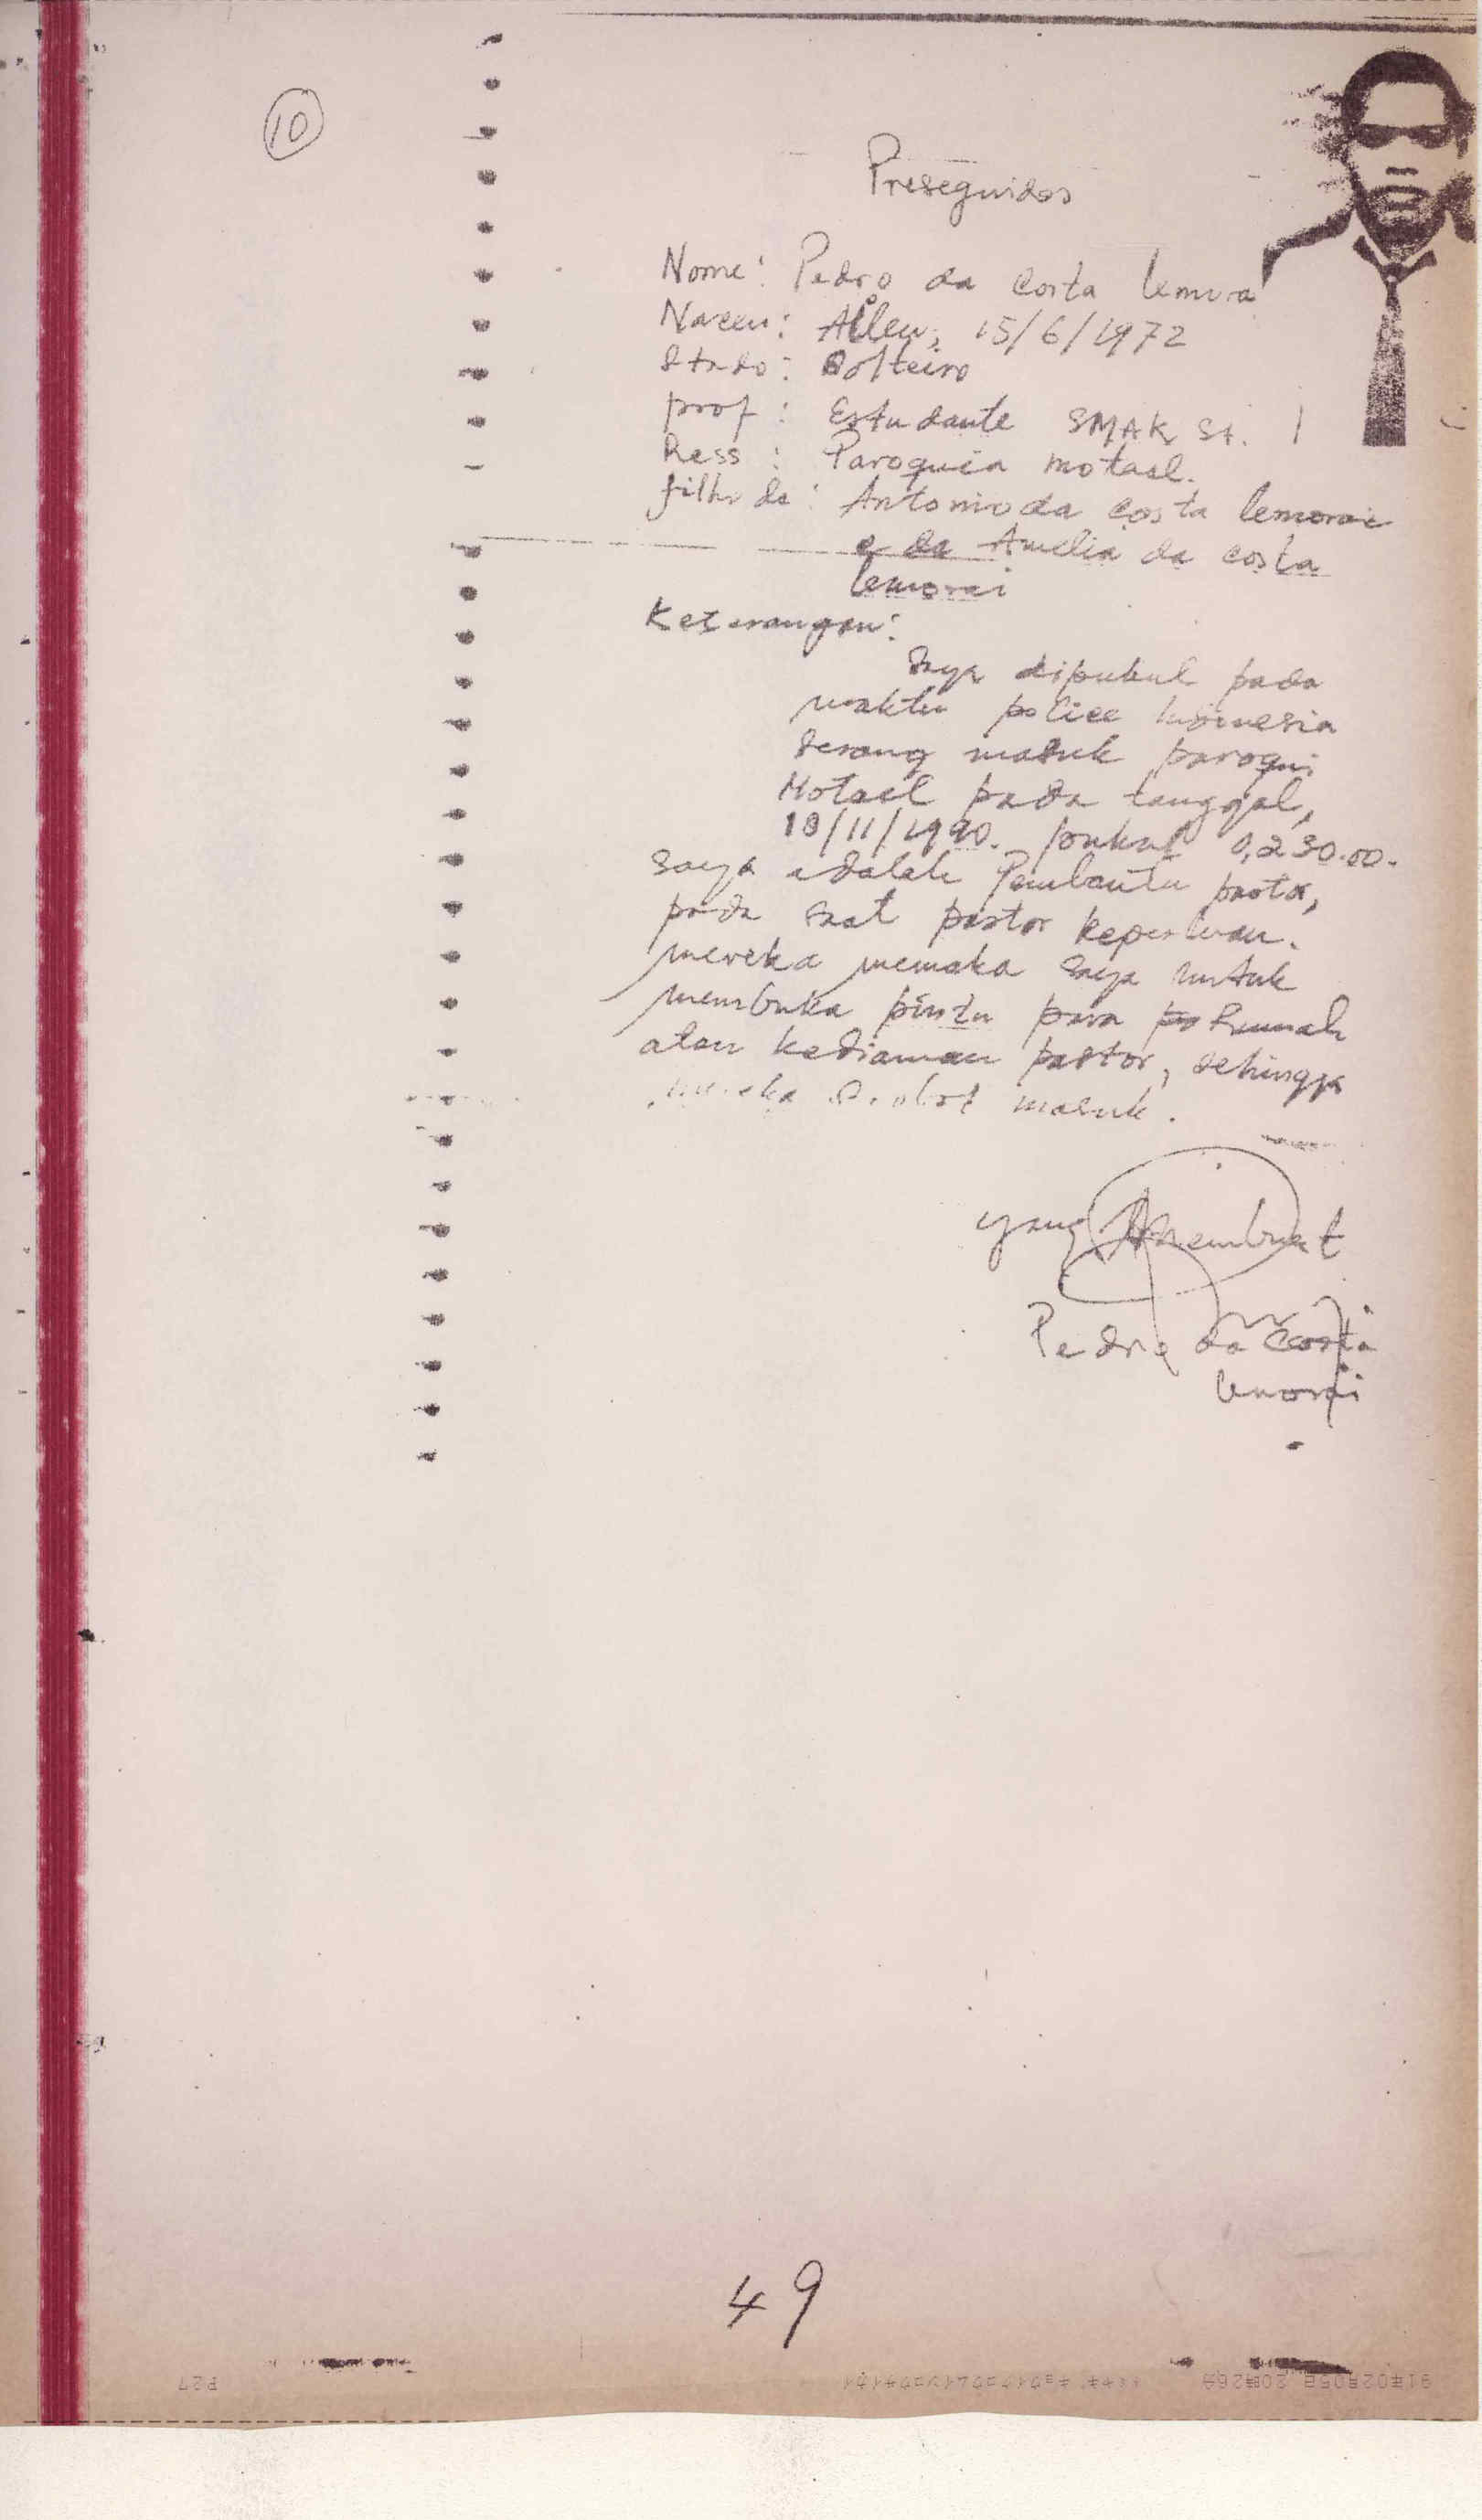 10
Preseguidos
Nome: Pedro da Costa lemora
Naceu: Aileu, 15/6/1972
Stado: Solteiro
prof: Estudante SMAK St. 1
Ress: Paroquia motael.
filho de: Antonio da costa lemorai
e da Amelia da costa
lemorai
Keterangan:
Saya dipukul pada
waktu police Indonesia
serang masuk paroqui
Motael pada tanggal,
/11/1990. pukul 0,230.00.
saya adalah Pembantu pastor,
pada saat pastor keperluan.
mereka memaksa saya untuk
membuka pintu para Rumah
atau kediaman pastor, sehingga
mereka masuk.
yang membuat
Pedro da Costa
lemorai
49
P27
91年02月05日 20時26分